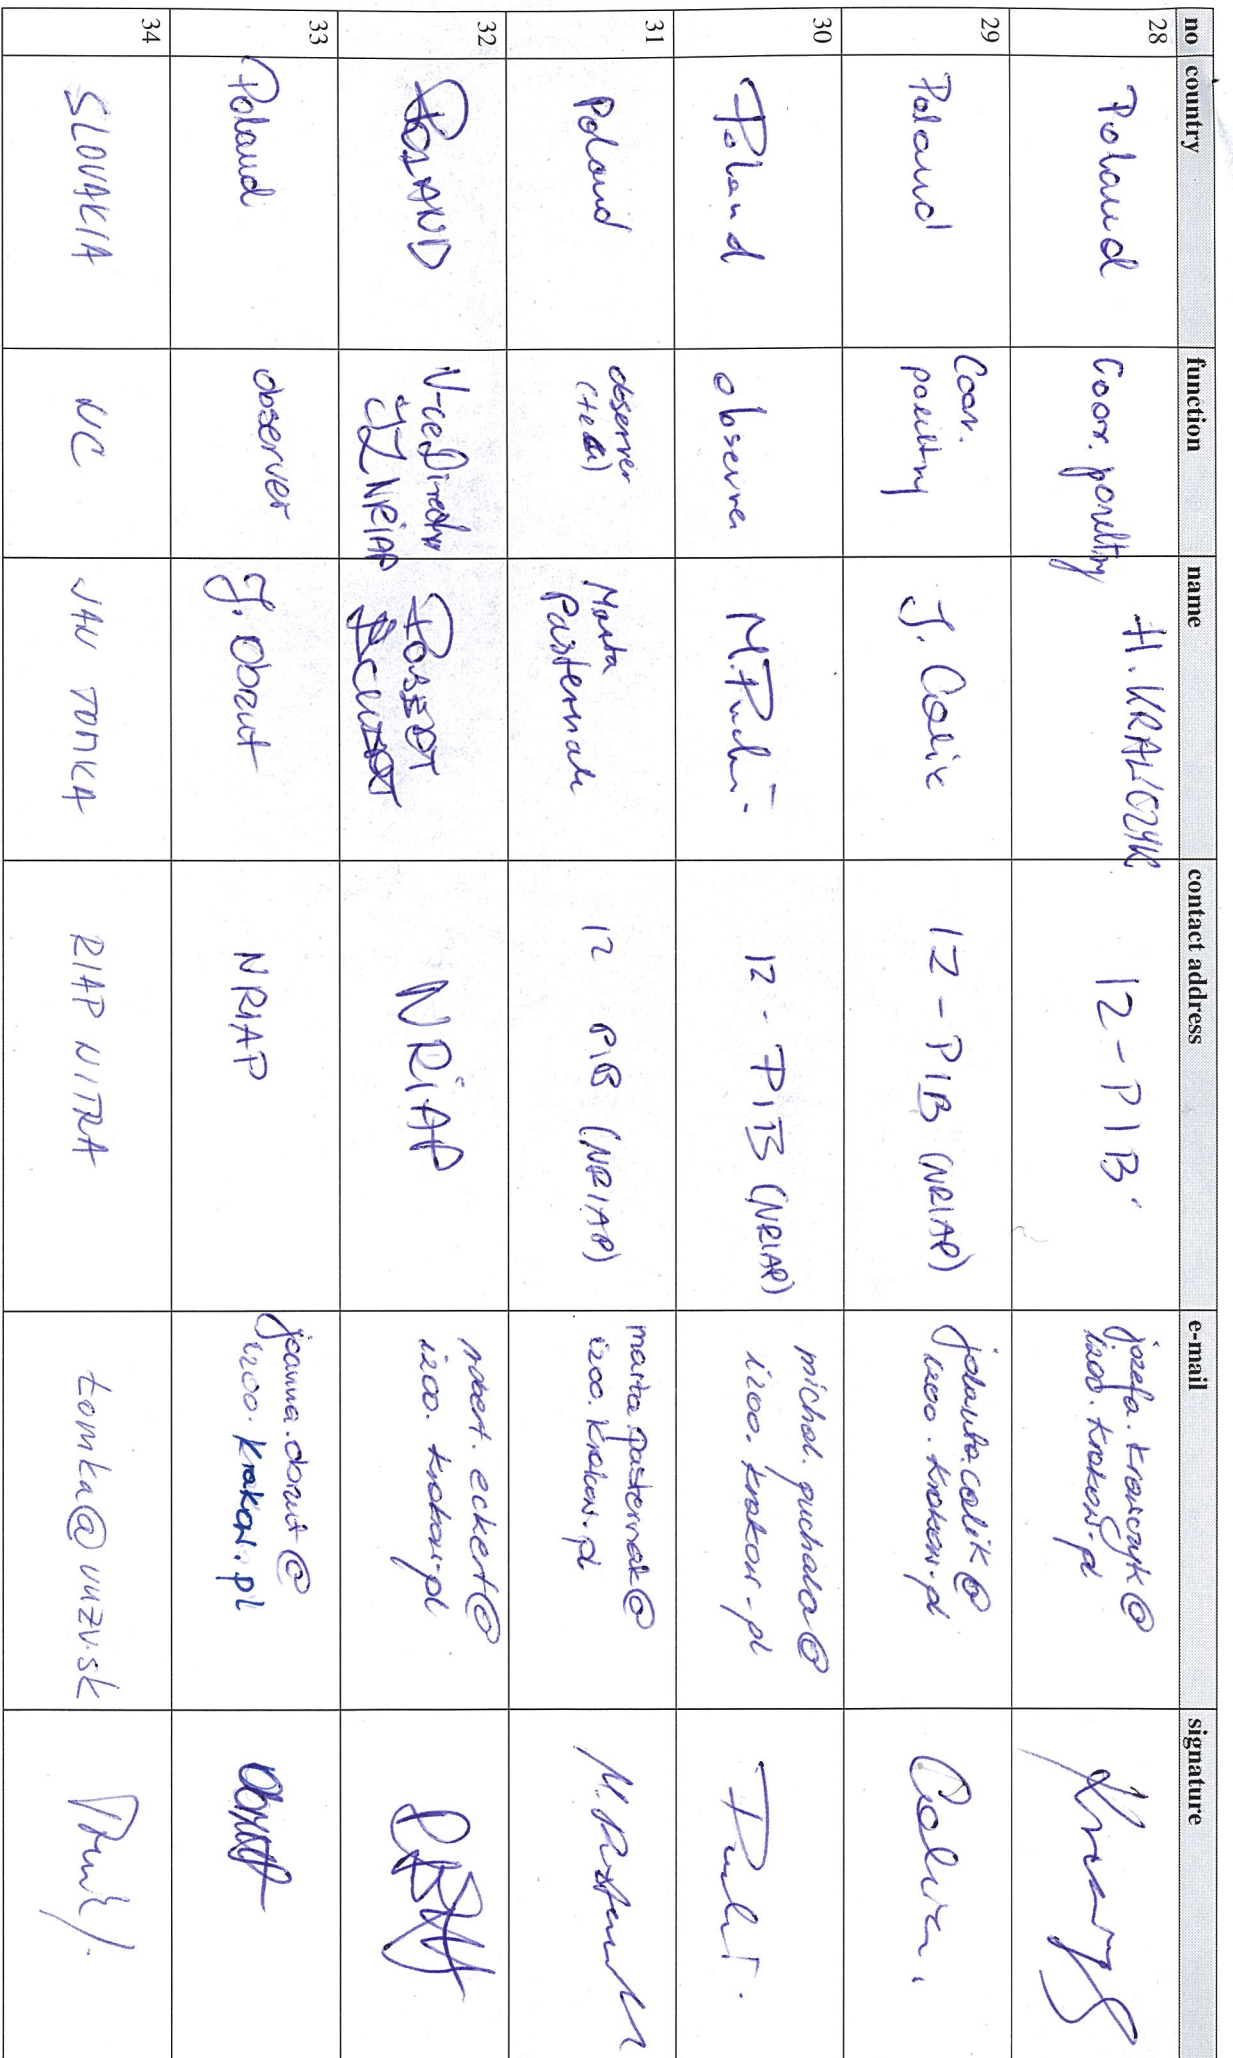 no country function name contact address e-mail signature
28 Poland Coor. poultry H. KRAWCZYK IZ - PIB józefa.krawczyk@
izoo.krakow.pl
29 Poland Coor.
poultry J. Calik IZ - PIB (NRIAP) jolanta.calik@
izoo.krakow.pl
30 Poland observer M. Puch IZ - PIB (NRIAP) michal.puchala@
izoo.krakow.pl
31 Poland observer
Marta
Pasternak IZ PIB (NRIAP) marta.pasternak@
izoo.krakow.pl M. Pastern
32 POLAND V-ce Director
IZ NRIAP NRIAP robert.eckert@
izoo.krakow.pl
33 Poland observer J. Obrzut NRIAP joanna.obrzut@
izoo.krakow.pl
34 SLOVAKIA NC JAN TOMKA RIAP NITRA tomka@vuzv.sk